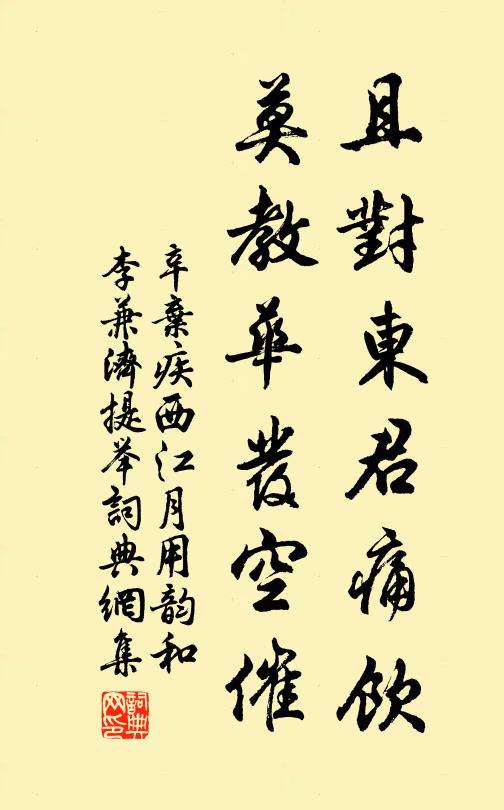 且對東君痛飲
莫教華發空催
辛棄疾西江月用韵和
李兼濟提举詞典網集
詞典
网印